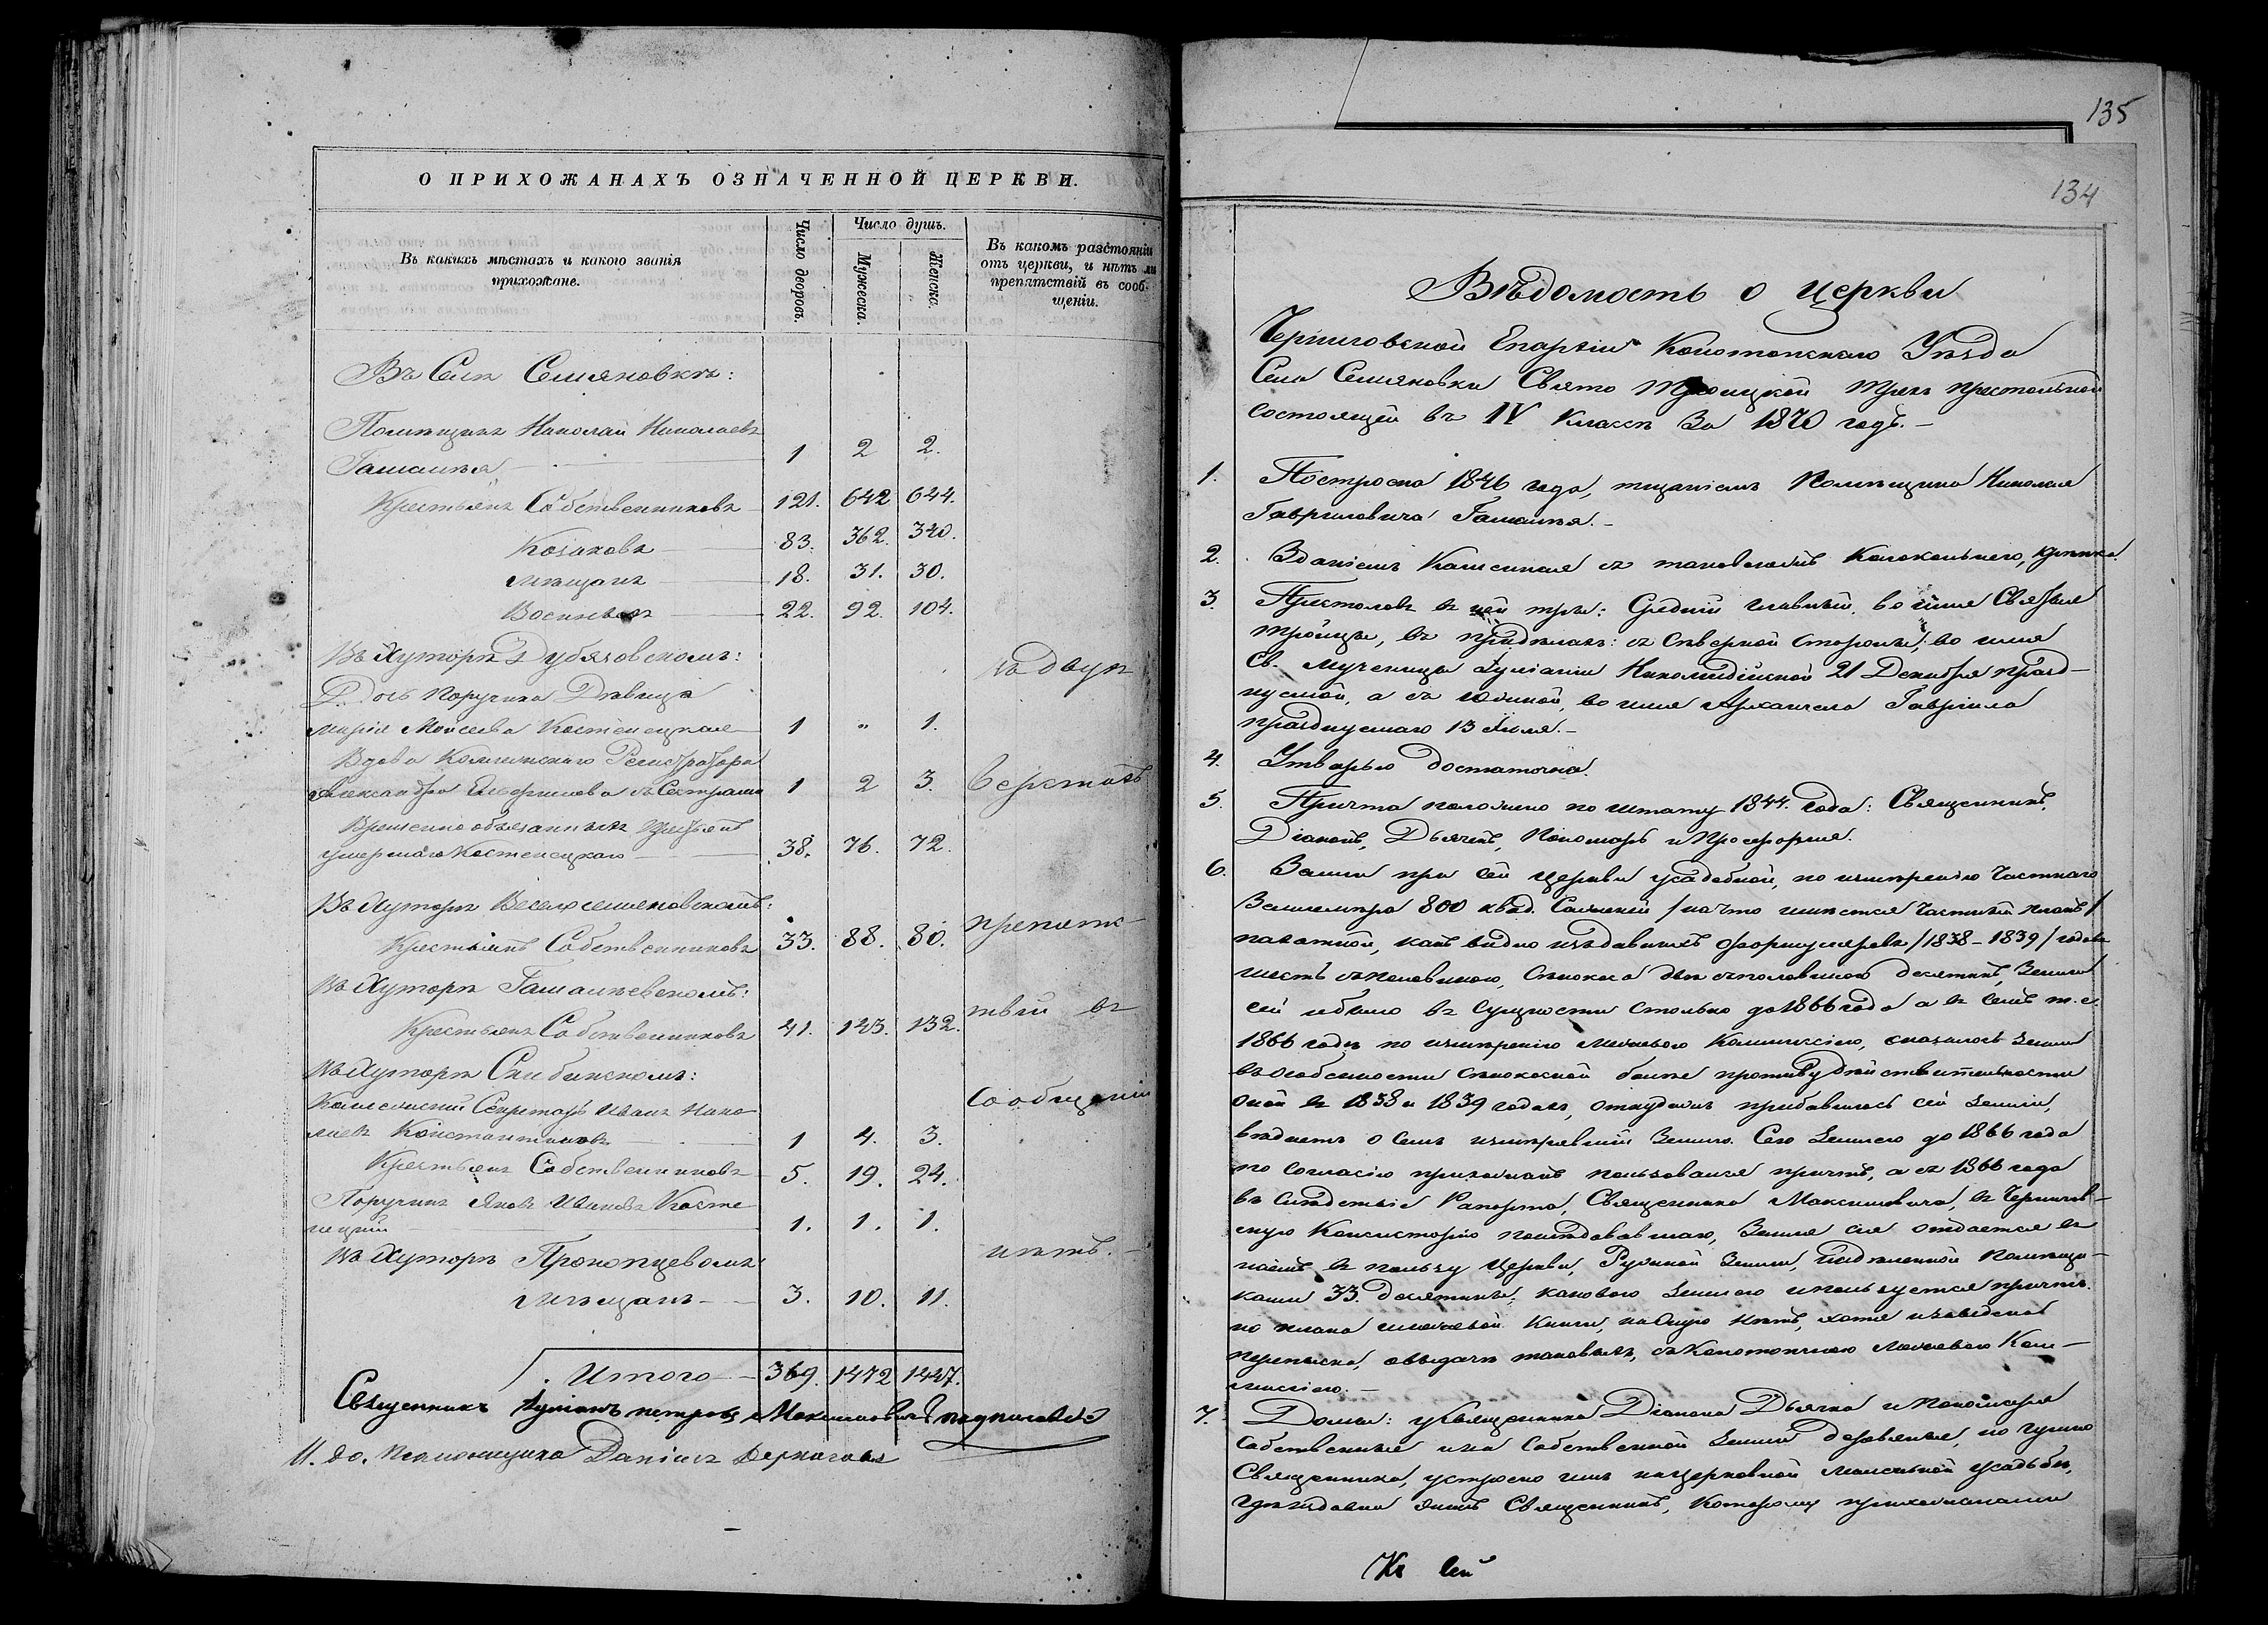 О ПРИХОЖАНАХЪ ОЗНАЧЕННОЙ ЦЕРКВИ.
Въ какихъ мѣстахъ и какого званія прихожане.
Число дворовъ.
Число душъ.
Мужеска.
Женска.
Въ какомъ разстояніи
отъ церкви, и нѣтъ ли
препятствій въ сооб-
щеніи.
Въ Селѣ Семяновкѣ:
Помѣщикъ Николай Николаевъ
Гамалѣя 1 2 2.
Крестьянъ Собственниковъ 121. 642 644.
Козаковъ 83. 362. 340.
Мѣщанъ 18. 31. 30.
Военныхъ 22. 92. 104.
Въ Хуторѣ Дубязовскомъ:
въ двухъ
Дочь Поручика Дѣвица
Марія Моисеева Костенецкая 1 " 1.
Вдова Коллежскаго Регистратора
Александра съ Сестрами 1 2 3. верстахъ
Временно обязанныхъ Крестьянъ
умершаго Костенецкаго 38. 76. 72.
Въ Хуторѣ Веселосемяновскомъ:
Крестьянъ Собственниковъ 33. 88. 80. препятс-
Въ Хуторѣ Гамалѣевскомъ:
твій въ
Крестьянъ Собственниковъ 41. 143. 132.
Въ Хуторѣ Скибинскомъ:
Коллежскій Секретарь Иванъ Нико- сообщеніи
лаевъ Константиновъ 1 4. 3.
Крестьянъ Собственниковъ 5. 19. 24.
Поручикъ Яковъ Ивановъ Косте-
нецкій 1. 1. 1.
Въ Хуторѣ Прокопцевомъ: нѣтъ.-
Мѣщанъ 3. 10. 11.
Итого 369. 1472 1447.
Священникъ Іуліанъ Петровъ Максимовичъ подписался
И. до. Псаломщика Даніилъ
135
134
Вѣдомость о церкви
Черниговской Епархіи Конотопскаго Уѣзда
Села Семяновки Свято Троицкой Трехъ престольной
состоящей въ IV классѣ За 1870 годъ.-
1. Построена 1846 года, тщаніемъ Помѣщика Николая
Гавриловича Гамалѣя.-
2. Зданіемъ Каменная съ таковоюжъ Колокольнею, крѣпка.
3. Престоловъ въ ней три: Средній главный во имя Святыя
Тройцы, въ придѣлахъ: съ Сѣверной стороны, во имя
Св. Мученицы Іуліаніи Никомидійской 21 Декабря празд-
нуемой, а съ южной, во имя Архангела Гавріила
празднуемаго 13 Іюля.-
4. Утварью достаточна.
5. Причта положено по штату 1844. года: Священникъ,
Діаконъ, Дьячекъ, Пономарь и Просфорня.
6. Земли при сей церкви усадебной, по измѣренію Частнаго
Землемѣра 800 квад. Саженей /на что имѣется Частный планъ/
пахатной, какъ видно изъ давнихъ формуляровъ /1838-1839/ годовъ
шесть съ половиною, сѣнокоса двѣ съ половиною десятинъ, Земли
сей и было въ сущности столько до 1866 года а въ семъ т. е.
1866 годѣ по измѣренію межевою Коммиссіею, оказалось земли
въ особенности сѣнокосной болѣе противу дѣйствительности
оной въ 1838 и 1839 годахъ, откудажъ прибавилось сей земли,
вѣдаетъ о семъ измѣрявшій Землю. Сею Землею до 1866 года
по согласію прихожанъ пользовался причтъ, а съ 1866 года
въ слѣдствіе Рапорта, Священника Максимовича, въ Чернигов-
скую Консисторію послѣдовавшаго, Земля сія отдается въ
наемъ въ пользу Церкви, Ружной Земли, надѣленной Помѣщи-
ками 33. десятины; каковою землею и пользуется причтъ.
но плана и межевой Книги, на оную нѣтъ, хотя и заведена
переписка, о выдачѣ таковыхъ, съ Конотопскою Межевою Ком-
миссіею.-
7. Домы: у Священника Діакона Дьячка и Пономаря
собственные и на собственной земли деревянные, но гумно
Священника, устроено имъ на церковной усадьбѣ,
Священникъ, которому прихожанами
Къ сей